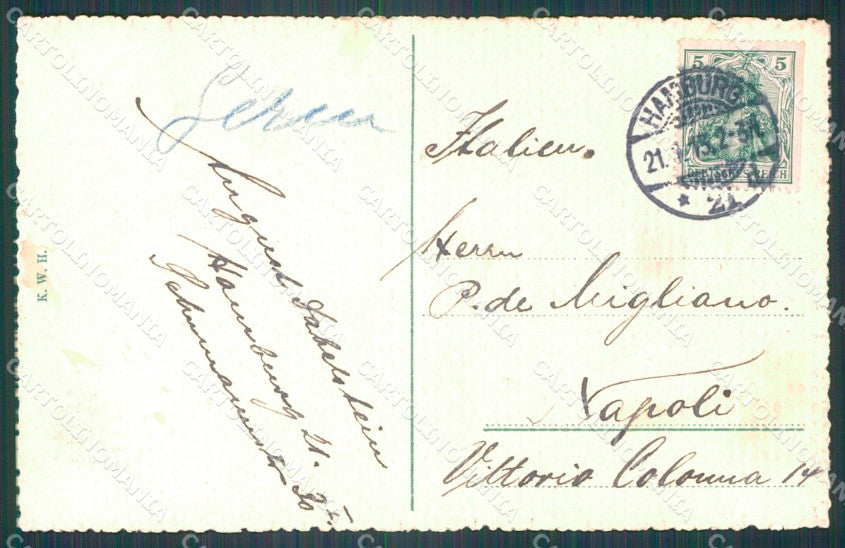 August Dabelstein
Hamburg 21.
Schumannstr 20 I.
K. W. H.
5 5
DEUTSCHES REICH
HAMBURG
* 21
Italien.
Herrn
P. de Migliano.
Napoli
Vittorio Colonna 14
CARTOLINOMANIA